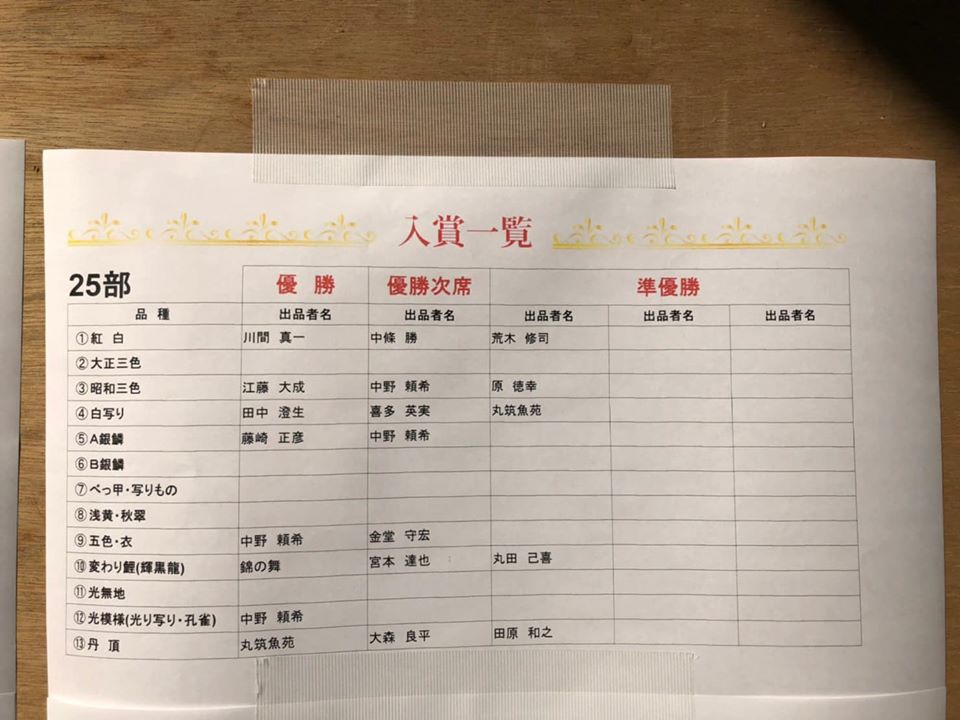 入賞一覧
25部 優 勝 優勝次席 準優勝
品 種 出品者名 出品者名 出品者名 出品者名 出品者名
①紅 白 川間 真一 中條 勝 荒木 修司
②大正三色
③昭和三色 江藤 大成 中野 頼希 原 徳幸
④白写り 田中 澄生 喜多 英実 丸筑魚苑
⑤A銀鱗 藤崎 正彦 中野 頼希
⑥B銀鱗
⑦べっ甲・写りもの
⑧浅黄・秋翠
⑨五色・衣 中野 頼希 金堂 守宏
⑩変わり鯉(輝黒龍) 錦の舞 宮本 達也 丸田 己喜
⑪光無地
⑫光模様(光り写り・孔雀) 中野 頼希
⑬丹 頂 丸筑魚苑 大森 良平 田原 和之